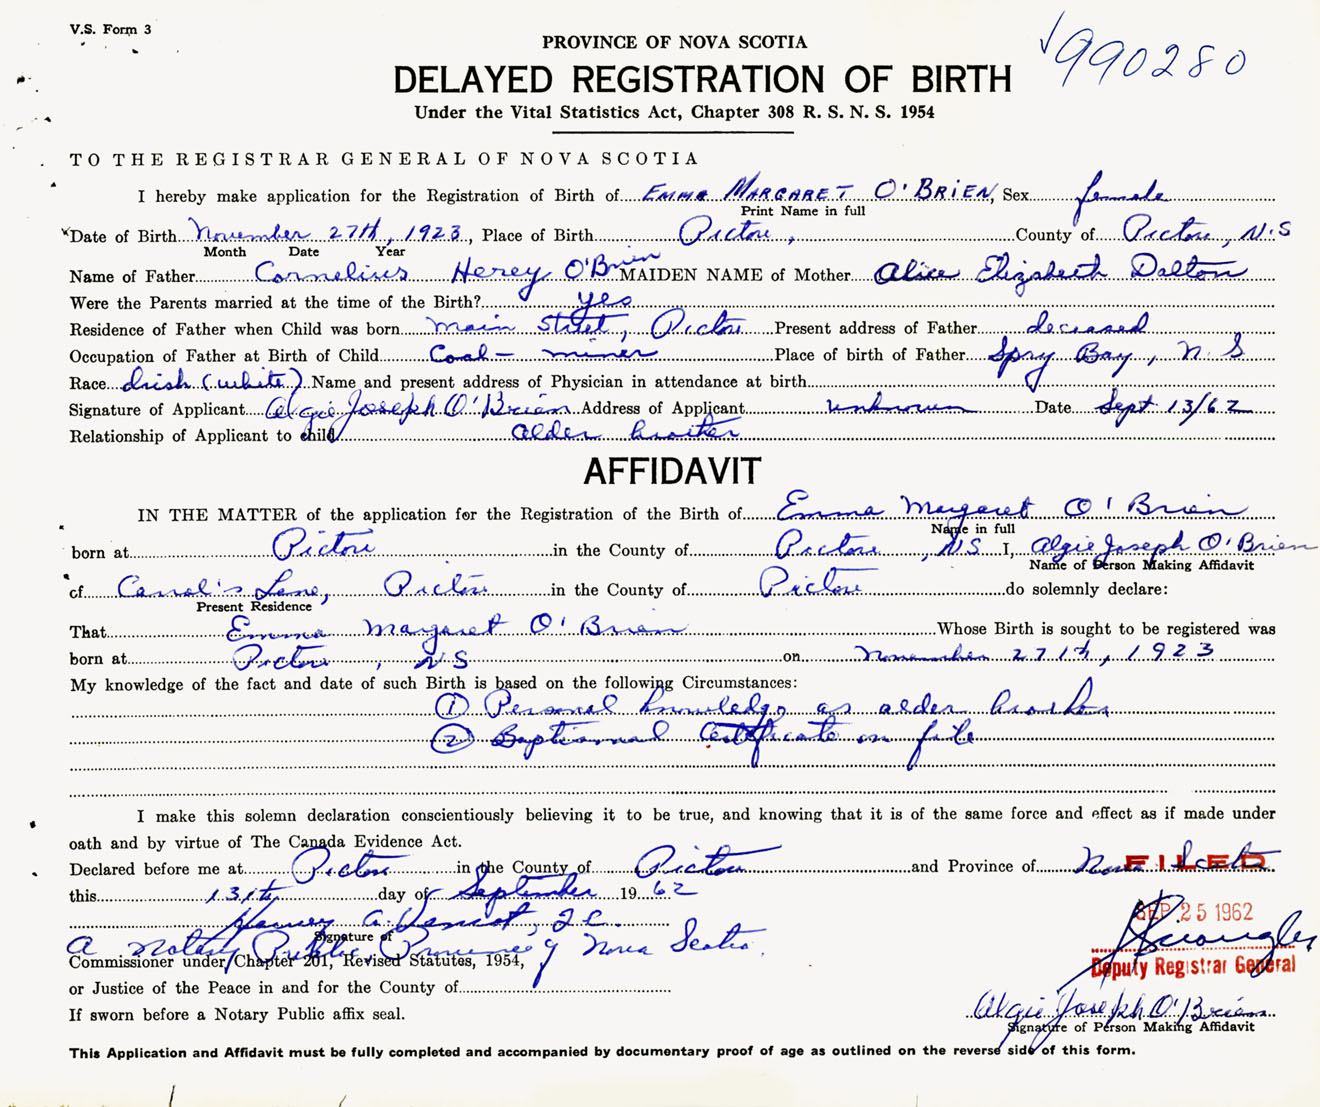 V.S. Form 3
PROVINCE OF NOVA SCOTIA
√990280
DELAYED REGISTRATION OF BIRTH
Under the Vital Statistics Act, Chapter 308 R. S. N. S. 1954
TO THE REGISTRAR GENERAL OF NOVA SCOTIA
I hereby make application for the Registration of Birth of EMMA MARGARET O'BRIEN, Sex female
Print Name in full
Date of Birth November 27th, 1923, Place of Birth Pictou, County of Pictou, N.S
Month Date Year
Name of Father Cornelius O'Brien MAIDEN NAME of Mother Alice Elizabeth Dalton
Were the Parents married at the time of the Birth? yes
Residence of Father when Child was born Main Street, Pictou Present address of Father deceased
Occupation of Father at Birth of Child Coal-miner Place of birth of Father Spry Bay, N.S
Race Irish (white) Name and present address of Physician in attendance at birth
Signature of Applicant Algie Joseph O'Brien Address of Applicant unknown Date Sept 13/62
Relationship of Applicant to child older brother
AFFIDAVIT
IN THE MATTER of the application for the Registration of the Birth of Emma Margaret O'Brien
Name in full
born at Pictou in the County of Pictou, NS I, Algie Joseph O'Brien
Name of Person Making Affidavit
of Lane, Pictou in the County of Pictou do solemnly declare:
Present Residence
That Emma Margaret O'Brien Whose Birth is sought to be registered was
born at Pictou, NS on November 27th, 1923
My knowledge of the fact and date of such Birth is based on the following Circumstances:
① Personal knowledge as older brother
② Baptismal Certificate on file
I make this solemn declaration conscientiously believing it to be true, and knowing that it is of the same force and effect as if made under
oath and by virtue of The Canada Evidence Act.
Declared before me at Pictou in the County of Pictou and Province of Nova Scotia
FILED
this 13th day of September 1962
SEP 25 1962
Signature of
A Notary Public Province of Nova Scotia.
Commissioner under Chapter 201, Revised Statutes, 1954,
Deputy Registrar General
or Justice of the Peace in and for the County of
Algie Joseph O'Brien
If sworn before a Notary Public affix seal.
Signature of Person Making Affidavit
This Application and Affidavit must be fully completed and accompanied by documentary proof of age as outlined on the reverse side of this form.